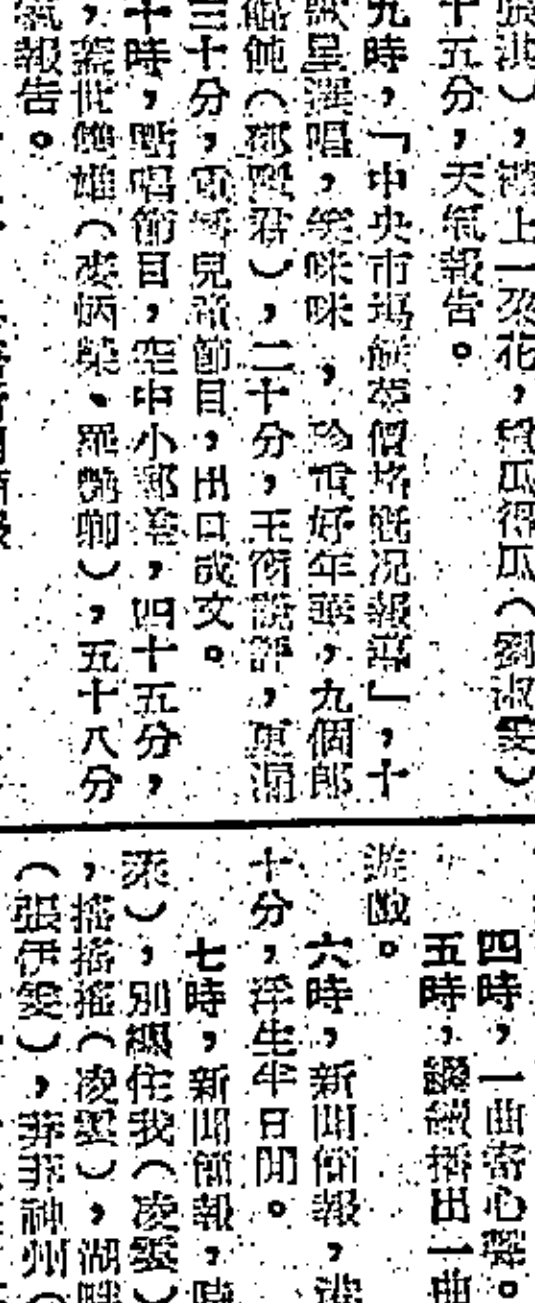 張淇），襟上一朵花，種瓜得瓜（劉淑雯）
十五分，天氣報告。
九時，「中央市場鮮菜價格概況報導」，十
歌星選唱，笑咪咪，珍重好年華，九個郎
餛飩（鄧麗君），二十分，王術說評，更漏
三十分，電話兒童節目，出口成文。
十時，點唱節目，空中小郵差，四十五分，
，蓋世雄（麥炳榮、羅艷卿），五十八分
氣報告。
四時，一曲寄心聲。
五時，繼續播出一曲
遊戲。
六時，新聞簡報，
十分，浮生半日閒。
七時，新聞簡報，時
來），別纏住我（凌雲）
，搖搖搖（凌雲），湖畔
（張伊雯），菲菲神州（